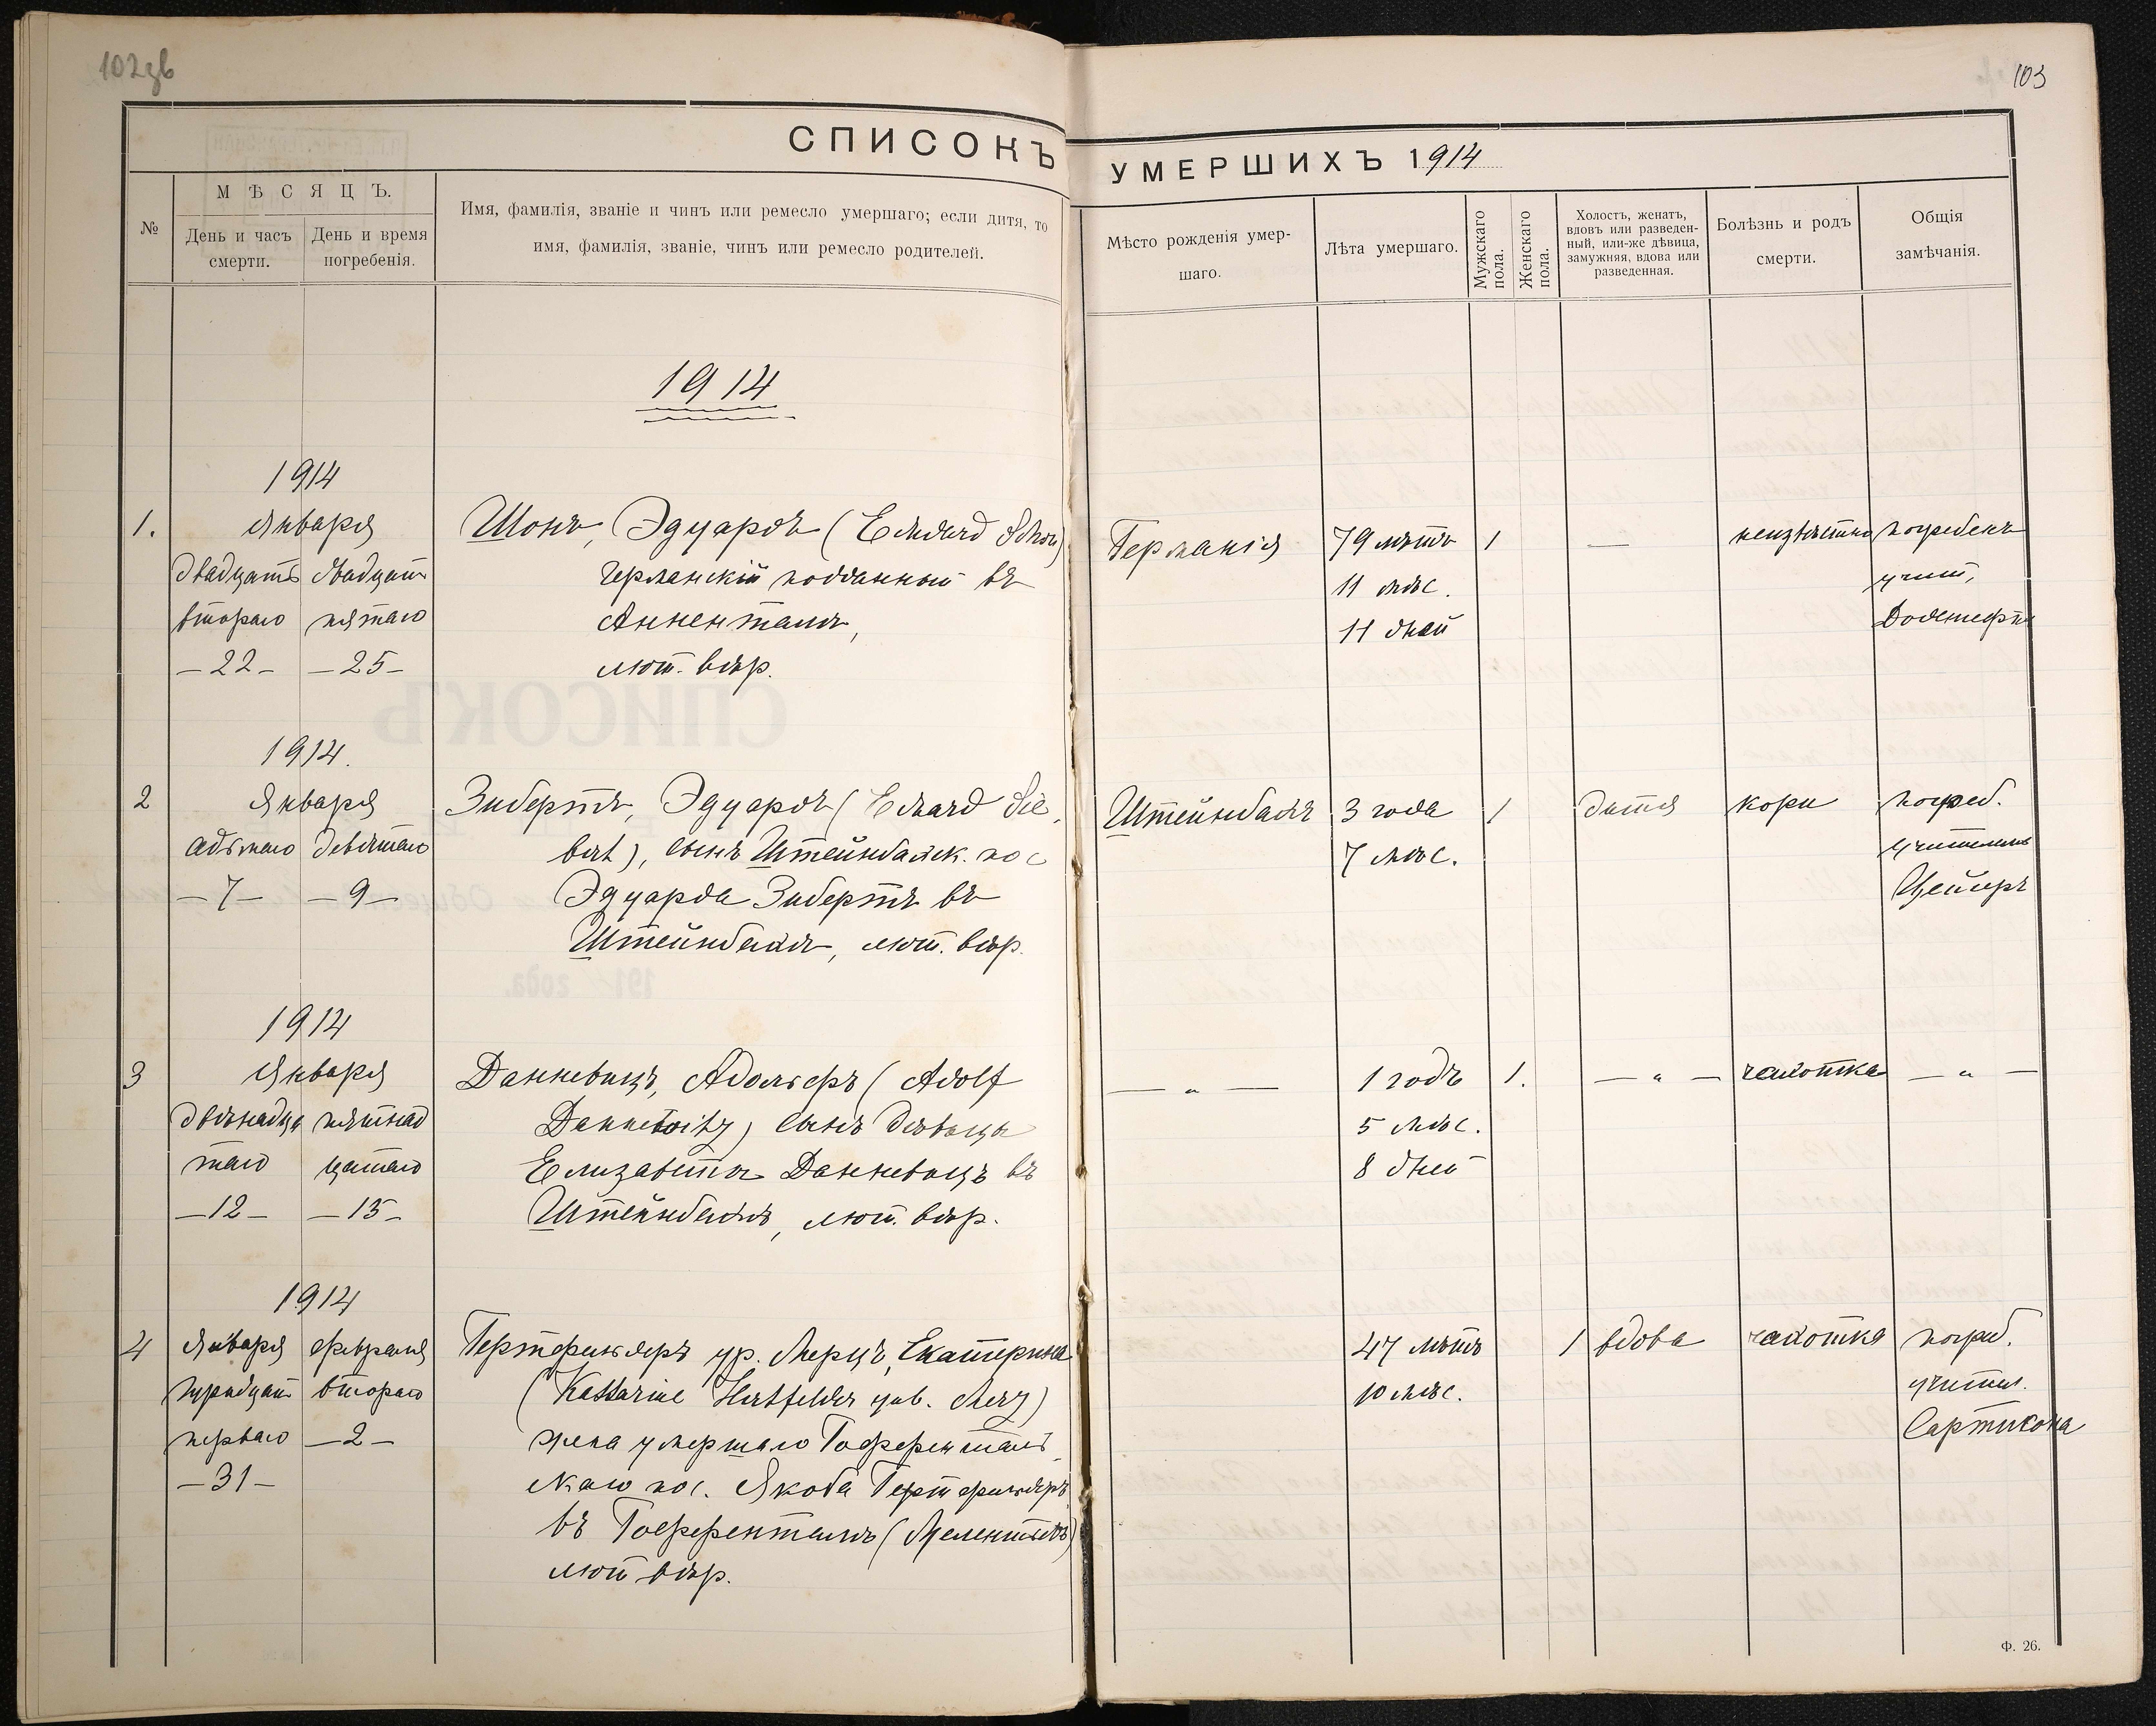 102 зв
103
СПИСОКЪ УМЕРШИХЪ 1914
№
МѢСЯЦЪ.
День и часъ
смерти.
День и время
погребенія.
Имя, фамилія, званіе и чинъ или ремесло умершаго; если дитя, то
имя, фамилія, званіе, чинъ или ремесло родителей.
Мѣсто рожденія умер-
шаго.
Лѣта умершаго.
Мужскаго
пола.
Женскаго
пола.
Холостъ, женатъ,
вдовъ или разведен-
ный, или-же дѣвица,
замужняя, вдова или
разведенная.
Болѣзнь и родъ
смерти.
Общія
замѣчанія.
1914
1.
1914
Января
двадцать
втораго
—22—
двадцать
пятаго
—25—
Шонъ, Эдуардъ (Eduard Schon)
германскій подданный въ
Аннентали,
лют. вѣр.
Германія
79 лѣтъ
11 мѣс.
11 дней
1
—
неизвѣстно
погребенъ
учит.
2
1914.
Января
седьмаго
—7—
девятаго
—9—
Зибертъ, Эдуардъ (Eduard Sie-
bert), сынъ Штейнбахск. пос
Эдуарда Зибертъ въ
Штейнбахѣ, лют. вѣр.
Штейнбахъ
3 года
7 мѣс.
1
дитя
кори
погреб.
учителемъ
Цейлеръ
3
1914
Января
двѣнадца
таго
—12—
пятнад
цатаго
—15—
Данневицъ, Адольфъ (Adolf
Dannewitz) сынъ дѣвицы
Елизаветы Данневицъ въ
Штейнбахѣ, лют. вѣр.
— „ —
1 годъ
5 мѣс.
8 дней
1.
— „ —
чахотка
— „ —
4
1914
Января
тридцать
перваго
—31—
февраля
втораго
—2—
Гертфельдеръ ур. Мерцъ, Екатерина
(Katharine Hertfelder geb. Merz)
жена умершаго Гоффенталь-
скаго пос. Якова Гертфельдеръ
въ Гоффенталѣ
лют вѣр.
47 лѣтъ
10 мѣс.
1
вдова
чахотка
погреб.
учител.
Ф. 26.